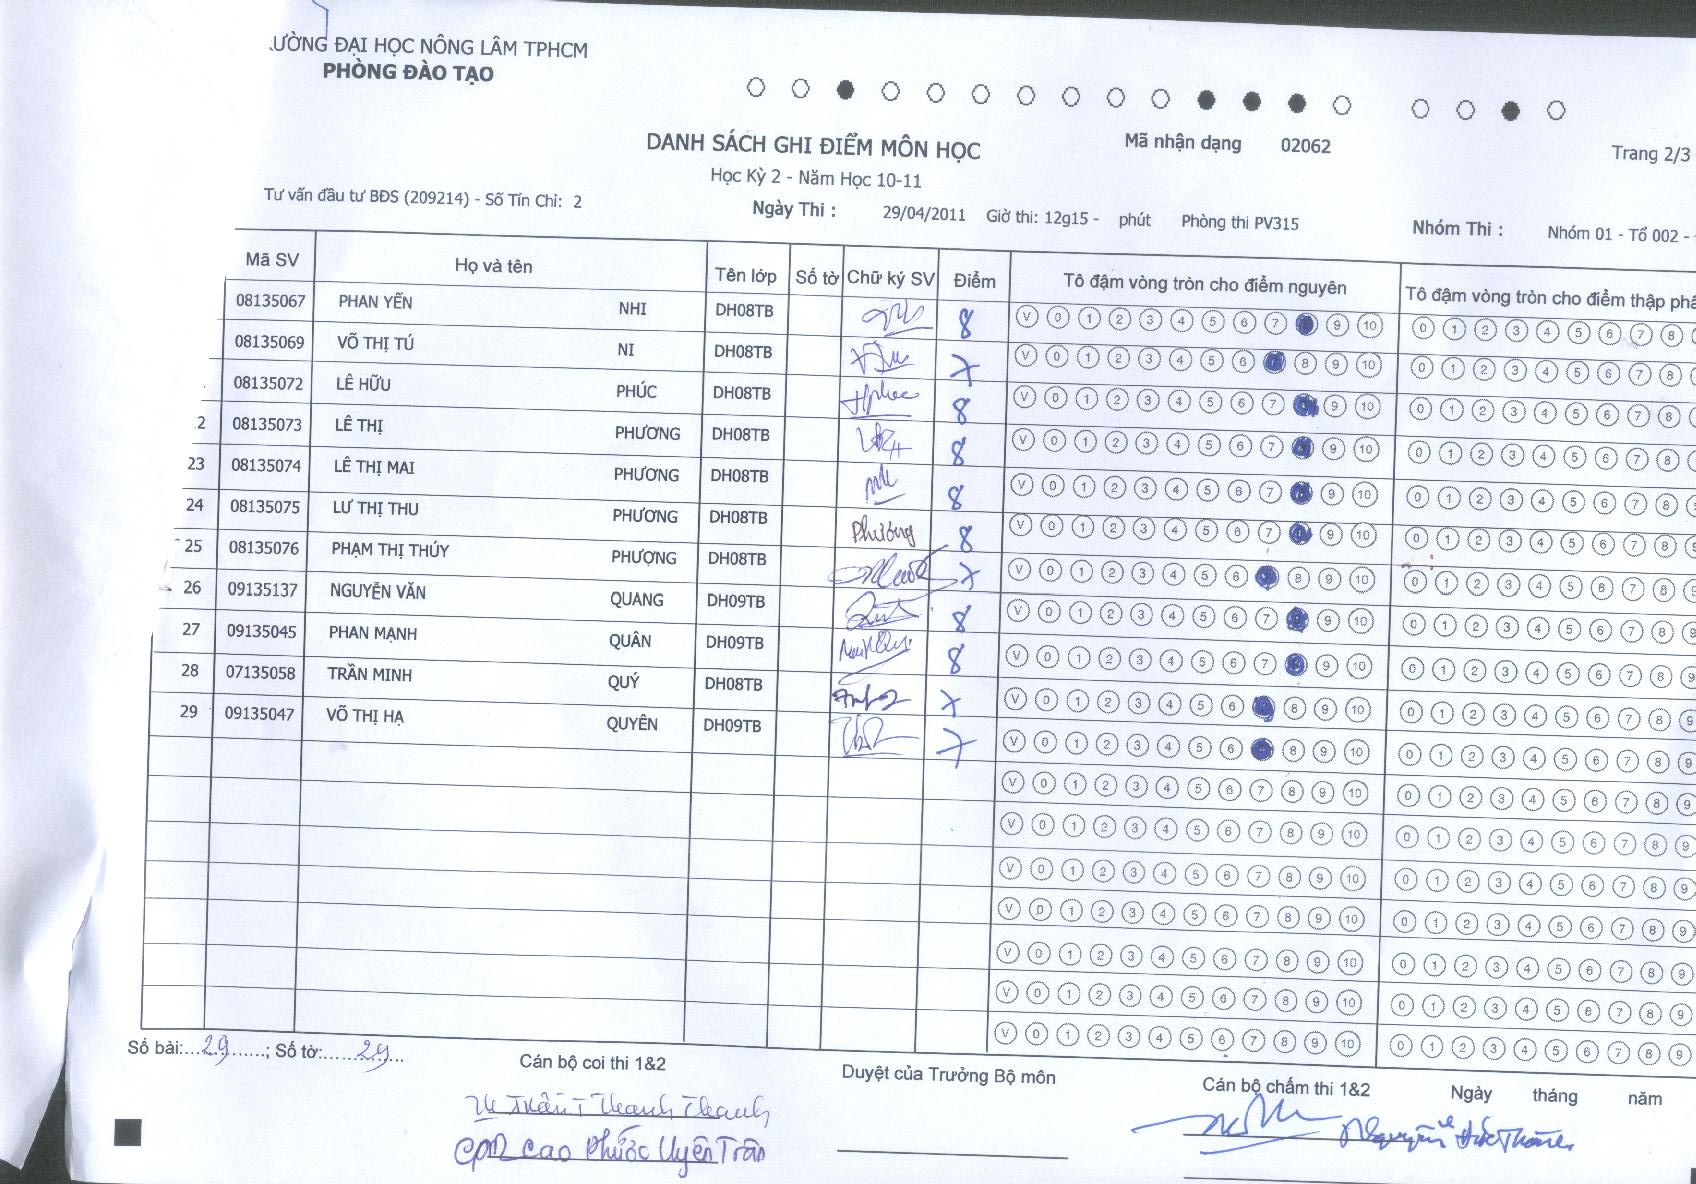 ƯỜNG ĐẠI HỌC NÔNG LÂM TPHCM
PHÒNG ĐÀO TẠO
DANH SÁCH GHI ĐIỂM MÔN HỌC
Mã nhận dạng 02062
Trang 2/3
Học Kỳ 2 - Năm Học 10-11
Tư vấn đầu tư BĐS (209214) - Số Tín Chỉ: 2
Ngày Thi : 29/04/2011 Giờ thi: 12g15 - phút Phòng thi PV315
Nhóm Thi : Nhóm 01 - Tổ 002 -
Mã SV Họ và tên Tên lớp Số tờ Chữ ký SV Điểm Tô đậm vòng tròn cho điểm nguyên Tô đậm vòng tròn cho điểm thập phâ
08135067 PHAN YẾN NHI DH08TB 8 V 0 1 2 3 4 5 6 7 9 10 0 1 2 3 4 5 6 7 8
08135069 VÕ THỊ TÚ NI DH08TB 7 V 0 1 2 3 4 5 6 8 9 10 0 1 2 3 4 5 6 7 8
08135072 LÊ HỮU PHÚC DH08TB 8 V 0 1 2 3 4 5 6 7 9 10 0 1 2 3 4 5 6 7 8
2 08135073 LÊ THỊ PHƯƠNG DH08TB 8 V 0 1 2 3 4 5 6 7 9 10 0 1 2 3 4 5 6 7 8
23 08135074 LÊ THỊ MAI PHƯƠNG DH08TB 8 V 0 1 2 3 4 5 6 7 9 10 0 1 2 3 4 5 6 7 8
24 08135075 LƯ THỊ THU PHƯƠNG DH08TB Phương 8 V 0 1 2 3 4 5 6 7 9 10 0 1 2 3 4 5 6 7 8 9
25 08135076 PHẠM THỊ THÚY PHƯỢNG DH08TB 7 V 0 1 2 3 4 5 6 8 9 10 0 1 2 3 4 5 6 7 8 9
26 09135137 NGUYỄN VĂN QUANG DH09TB 8 V 0 1 2 3 4 5 6 7 9 10 0 1 2 3 4 5 6 7 8 9
27 09135045 PHAN MẠNH QUÂN DH09TB 8 V 0 1 2 3 4 5 6 7 9 10 0 1 2 3 4 5 6 7 8 9
28 07135058 TRẦN MINH QUÝ DH08TB 7 V 0 1 2 3 4 5 6 8 9 10 0 1 2 3 4 5 6 7 8 9
29 09135047 VÕ THỊ HẠ QUYÊN DH09TB 7 V 0 1 2 3 4 5 6 8 9 10 0 1 2 3 4 5 6 7 8 9
V 0 1 2 3 4 5 6 7 8 9 10 0 1 2 3 4 5 6 7 8 9
V 0 1 2 3 4 5 6 7 8 9 10 0 1 2 3 4 5 6 7 8 9
V 0 1 2 3 4 5 6 7 8 9 10 0 1 2 3 4 5 6 7 8 9
V 0 1 2 3 4 5 6 7 8 9 10 0 1 2 3 4 5 6 7 8 9
V 0 1 2 3 4 5 6 7 8 9 10 0 1 2 3 4 5 6 7 8 9
V 0 1 2 3 4 5 6 7 8 9 10 0 1 2 3 4 5 6 7 8 9
V 0 1 2 3 4 5 6 7 8 9 10 0 1 2 3 4 5 6 7 8 9
Số bài:...29......; Số tờ:.....29...
Cán bộ coi thi 1&2
Duyệt của Trưởng Bộ môn
Cán bộ chấm thi 1&2
Ngày tháng năm
Trần T Thanh Thanh
Cao Phước Uyên Trân
Nguyễn Đức Thành